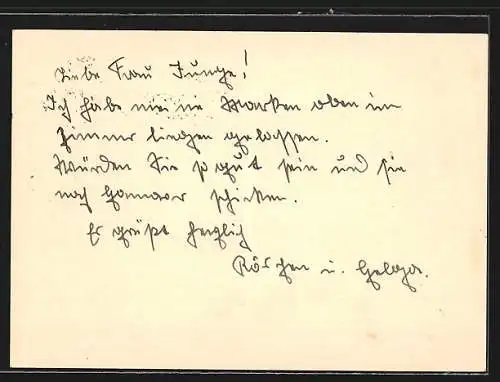 Liebe Frau Junge!
Ich habe meine Marken oben im
Zimmer liegen gelassen.
Würden Sie so gut sein und sie
nach Hannover schicken.
Es grüßt herzlich
Röschen u. Helga.